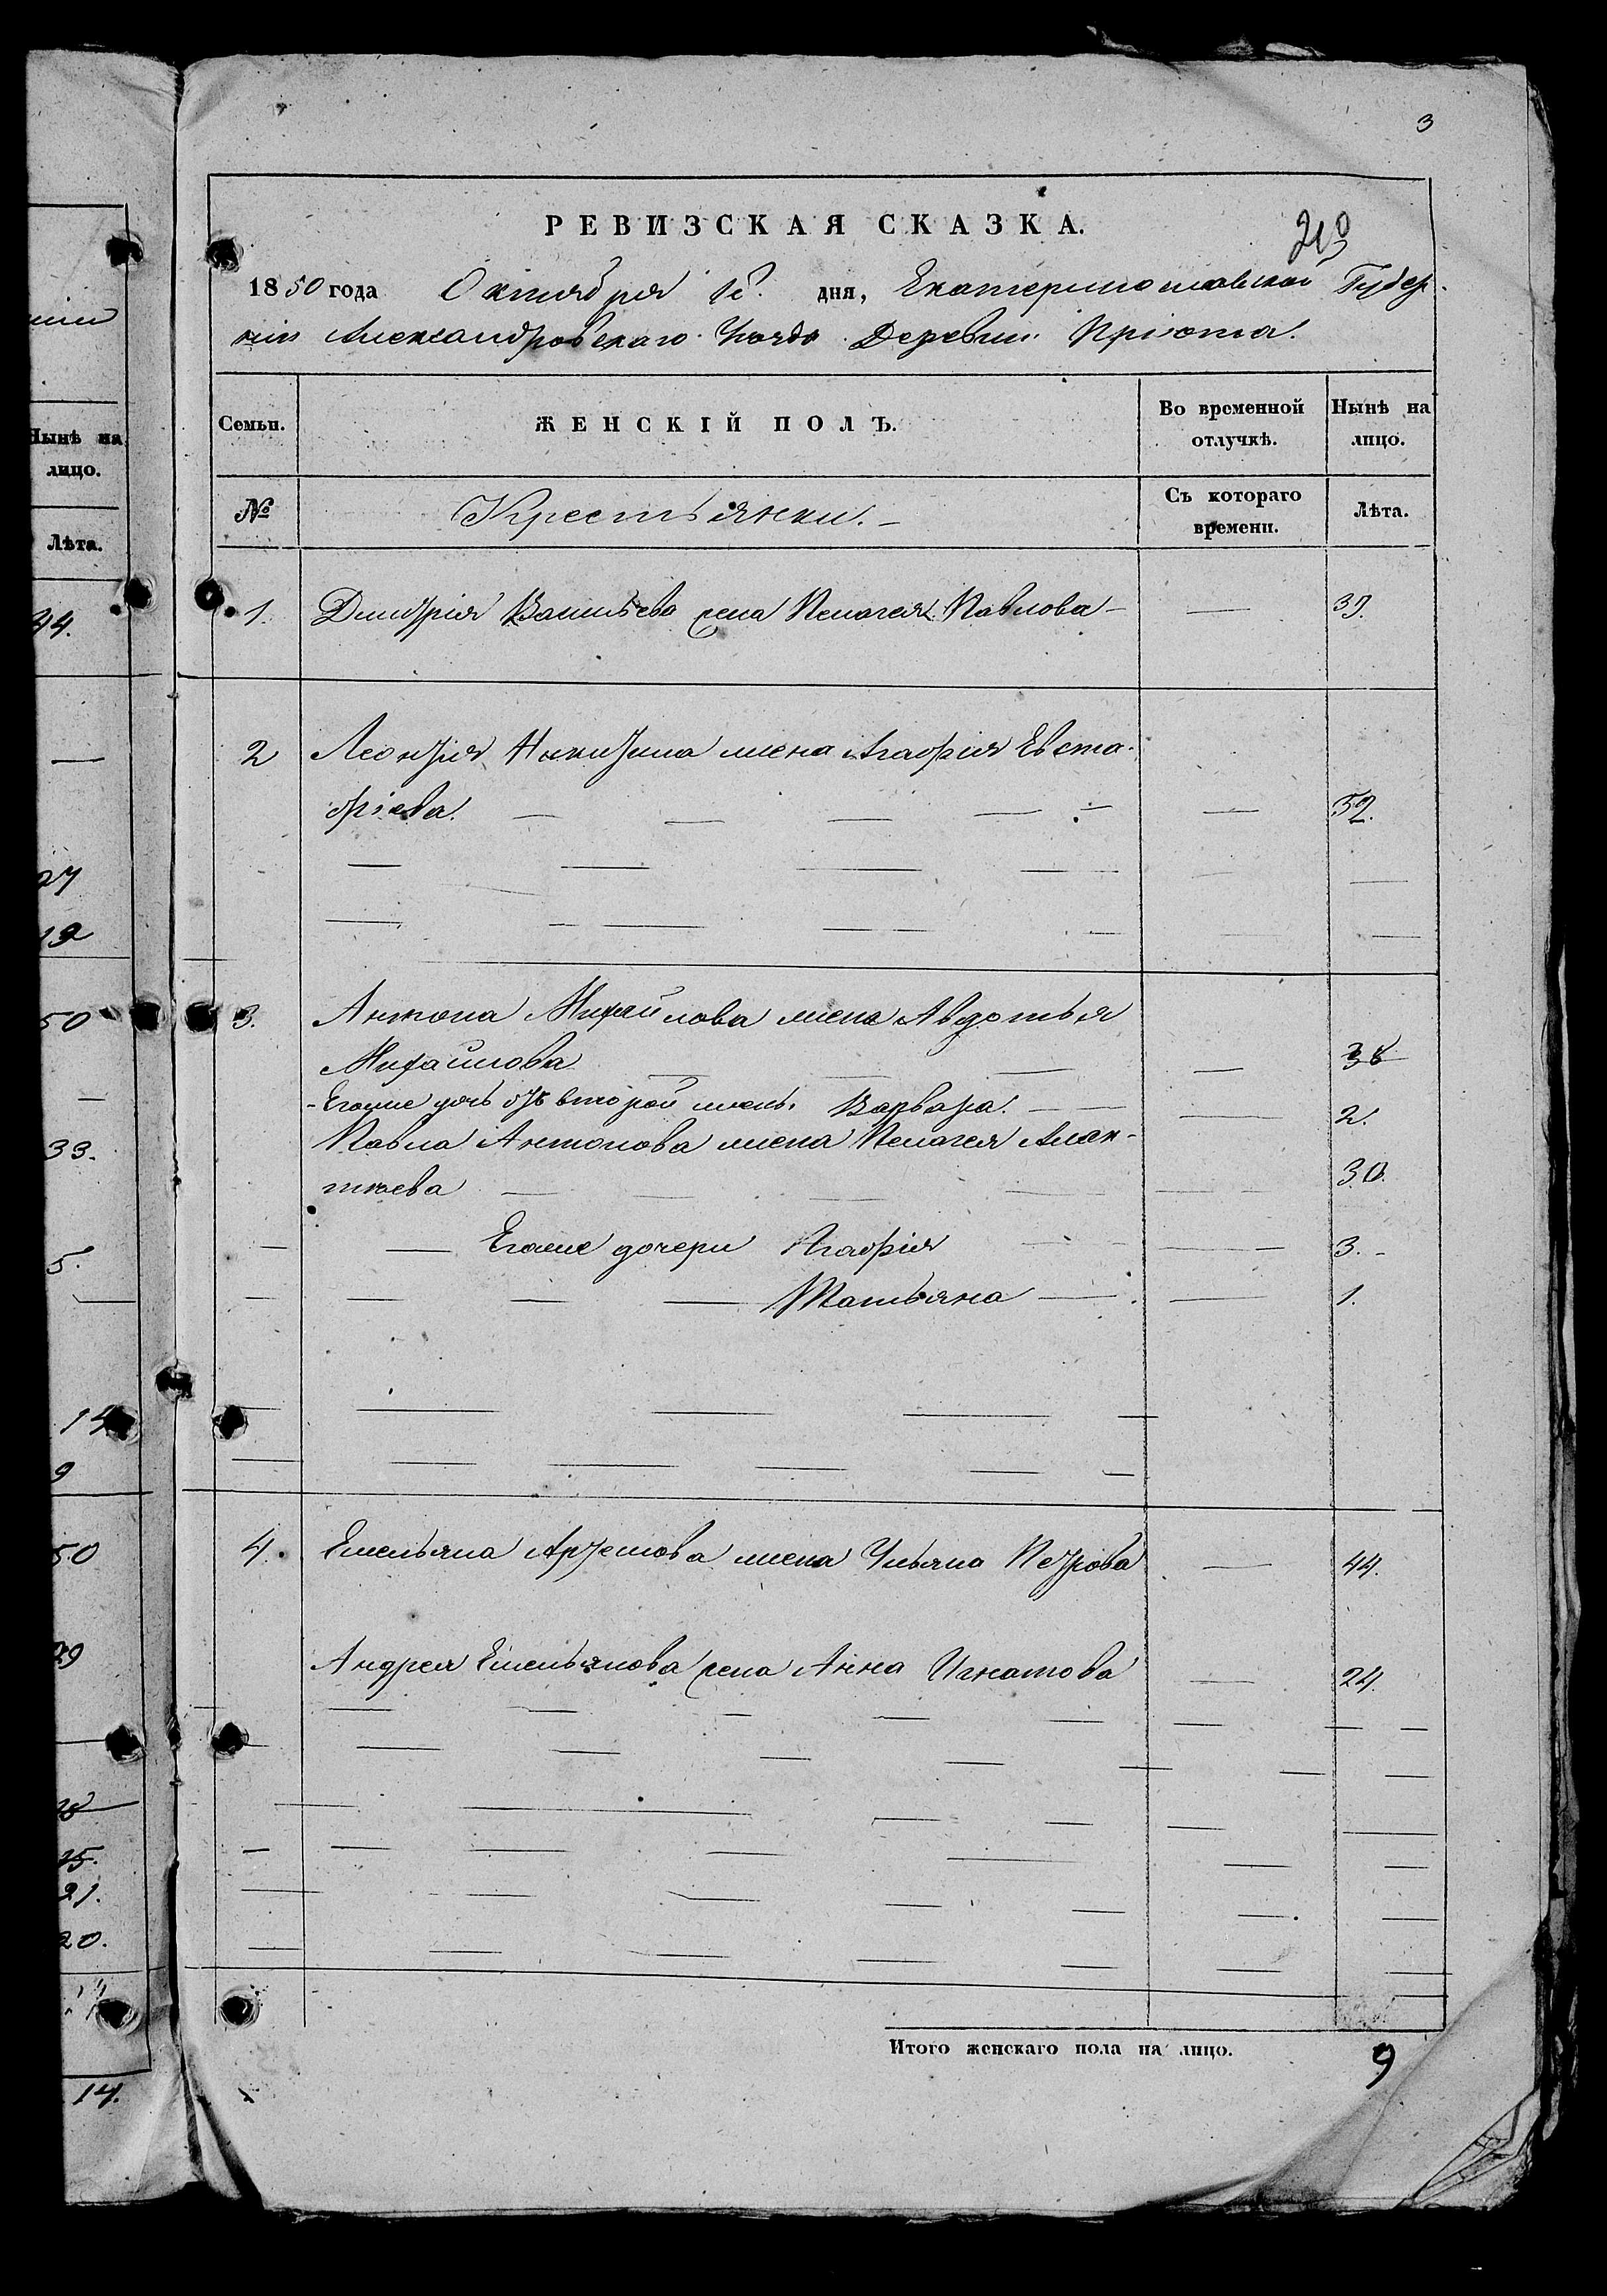 3
РЕВИЗСКАЯ СКАЗКА.
213
1850 года Октября дня, Екатеринославской Губер-
ніи Александровскаго Уѣзда Деревни Пріюта.
Семьи.
ЖЕНСКІЙ ПОЛЪ.
Во временной отлучкѣ.
Нынѣ на лицо.
№
Крестьянки.
Съ котораго времени.
Лѣта.
1. Дмитрія Васильева жена Пелагея Павлова — — 39.
2 Леонтія Никитина жена Агафія Евста-
фіева. — 52.
3. Антона Михайлова жена Авдотья
Михайлова — 38
Егоже дочь отъ второй жены Варвара. — 2.
Павла Антонова жена Пелагея
тьева — 30.
Егоже дочери Агафія — 3.
Татьяна — 1.
4. Емельяна Артемова жена Ульяна Петрова — 44.
Андрея Емельянова жена Анна Игнатова — 24.
Итого женскаго пола на лицо. 9
Нынѣ на
лицо.
Лѣта.
44.
27
12
50
33.
5.
14
9
50
29
15.
21.
20.
14.